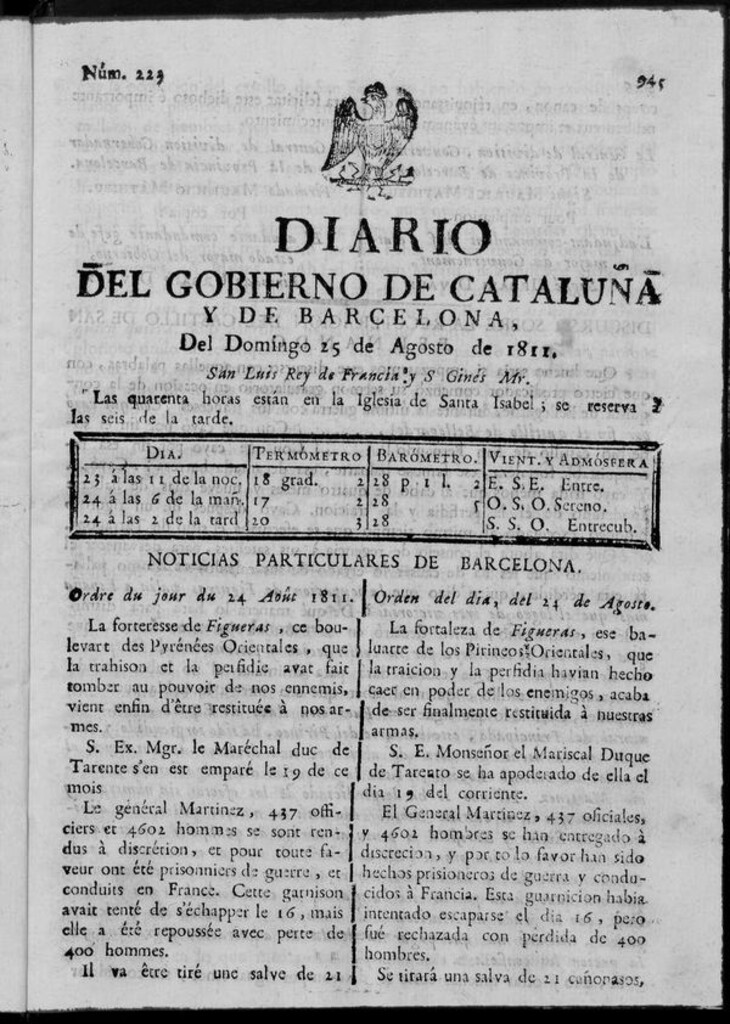 Núm. 223
945
DIARIO
DEL GOBIERNO DE CATALUÑA
Y DE BARCELONA,
Del Domingo 25 de Agosto de 1811.
San Luis Rey de Francia y S Ginés Mr.
Las quarenta horas están en la Iglesia de Santa Isabel; se reserva á
las seis de la tarde.
DIA. TERMÓMETRO BARÓMETRO. VIENT. Y ADMÓSFERA
23 á las 11 de la noc. 18 grad. 2 28 p 1 l. 2 E. S. E. Entre.
24 á las 6 de la mañ. 17 2 28 5 O. S. O. Sereno.
24 á las 2 de la tard 20 3 28 S. S. O. Entrecub.
NOTICIAS PARTICULARES DE BARCELONA.
Ordre du jour du 24 Août 1811.
La forteresse de Figueras, ce bou-
levart des Pyrénées Orientales, que
la trahison et la perfidie avat fait
tomber au pouvoir de nos ennemis,
vient enfin d'être restituée à nos ar-
mes.
S. Ex. Mgr. le Maréchal duc de
Tarente s'en est emparé le 19 de ce
mois
Le général Martinez, 437 offi-
ciers et 4602 hommes se sont ren-
dus à discrétion, et pour toute fa-
veur ont été prisonniers de guerre, et
conduits en France. Cette garnison
avait tenté de s'échapper le 16, mais
elle a été repoussée avec perte de
400 hommes.
Il va être tiré une salve de 21
Orden del dia, del 24 de Agosto.
La fortaleza de Figueras, ese ba-
luarte de los Pirineos Orientales, que
la traicion y la perfidia havian hecho
caer en poder de los enemigos, acaba
de ser finalmente restituida à nuestras
armas.
S. E. Monseñor el Mariscal Duque
de Tarento se ha apoderado de ella el
dia 19 del corriente.
El General Martinez, 437 oficiales,
y 4602 hombres se han entregado à
discrecion, y por to lo favor han sido
hechos prisioneros de guerra y condu-
cidos à Francia. Esta guarnicion habia
intentado escaparse el dia 16, pero
fué rechazada con perdida de 400
hombres.
Se tirará una salva de 21 cañonasos,